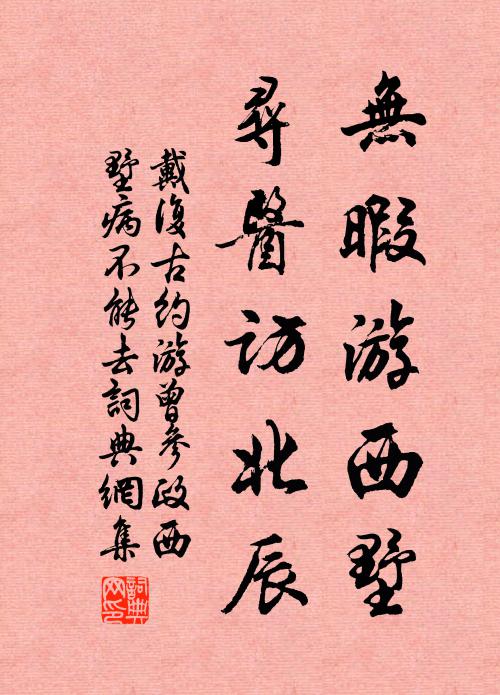 無暇游西墅
尋醫訪北辰
戴復古約游曾參政西
墅病不能去詞典網集
詞典
网印